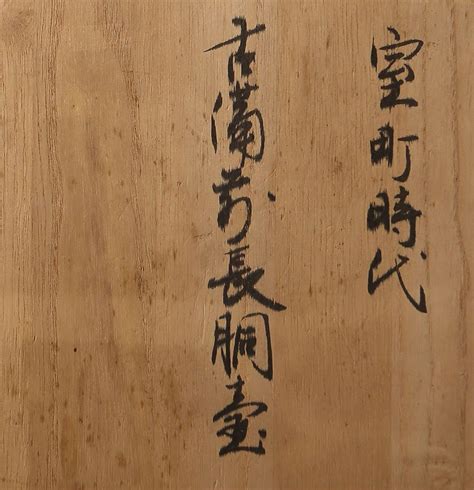 室町時代
古備前長胴壷